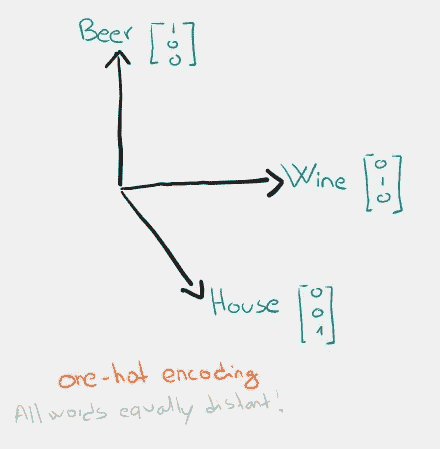 Beer [1 0 0]
Wine [0 1 0]
House [0 0 1]
one-hot encoding
All words equally distant!